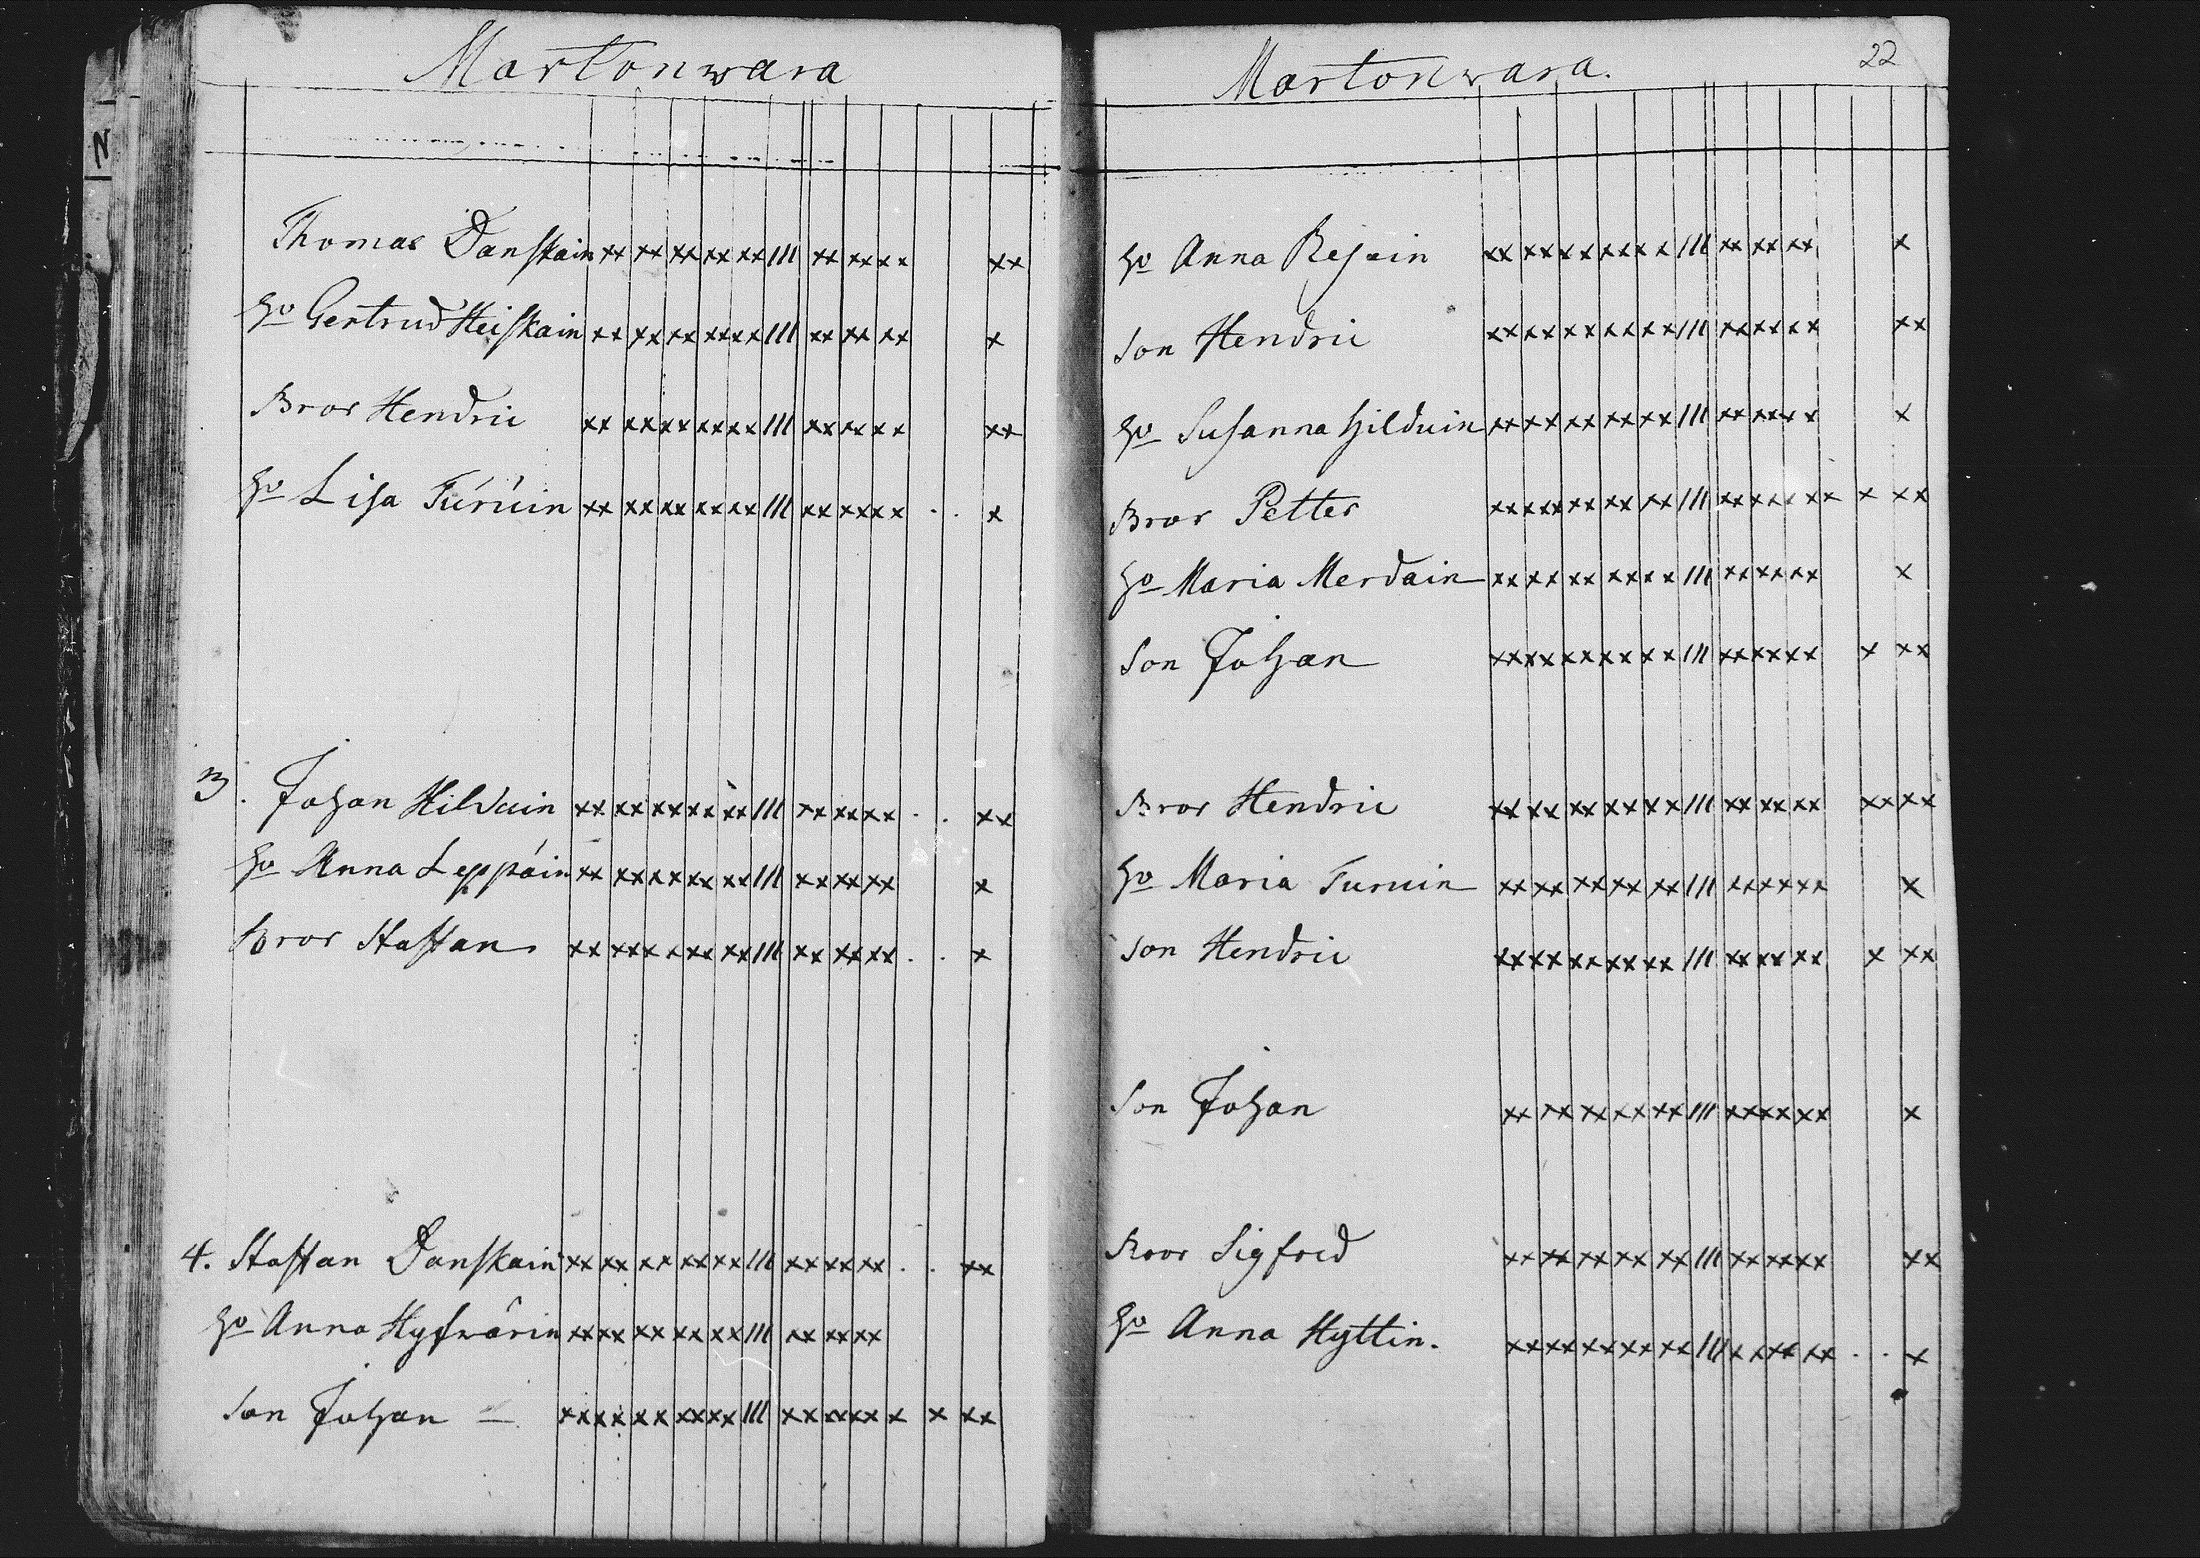 Martonwara
Thomas Danskain xx xx xx xx xx III xx xx xx xx
Ho Gertrud Heiskain xx xx xx xx xx III xx xx xx x
Bror Hendric xx xx xx xx xx III xx xx xx xx
Ho Lisa Turuin xx xx xx xx xx III xx xx xx . . x
3. Johan Hilduin xx xx xx xx xx III xx xx xx . . xx
Ho Anna Leppäin xx xx xx xx xx III xx xx xx x
Bror Staffan xx xx xx xx xx III xx xx xx . . x
4. Staffan Danskain xx xx xx xx xx III xx xx xx . . xx
Ho Anna Hyfwärin xx xx xx xx xx III xx xx xx
Son Johan – xx xx xx xx xx III xx xx xx x x xx
Martonwara. 22
Ho Anna Resain xx xx xx xx xx III xx xx xx x
Son Hendric xx xx xx xx xx III xx xx xx xx
Ho Susanna Hilduin xx xx xx xx xx III xx xx xx x
Bror Petter xx xx xx xx xx III xx xx xx x x xx
Ho Maria Merdain xx xx xx xx xx III xx xx xx x
Son Johan xx xx xx xx xx III xx xx xx x xx
Bror Hendric xx xx xx xx xx III xx xx xx xx xx
Ho Maria Turuin xx xx xx xx xx III xx xx xx x
Son Hendric xx xx xx xx xx III xx xx xx x xx
Son Johan xx xx xx xx xx III xx xx xx x
Bror Sigfred xx xx xx xx xx III xx xx xx xx
Ho Anna Hyttin. xx xx xx xx xx III xx xx xx . . x